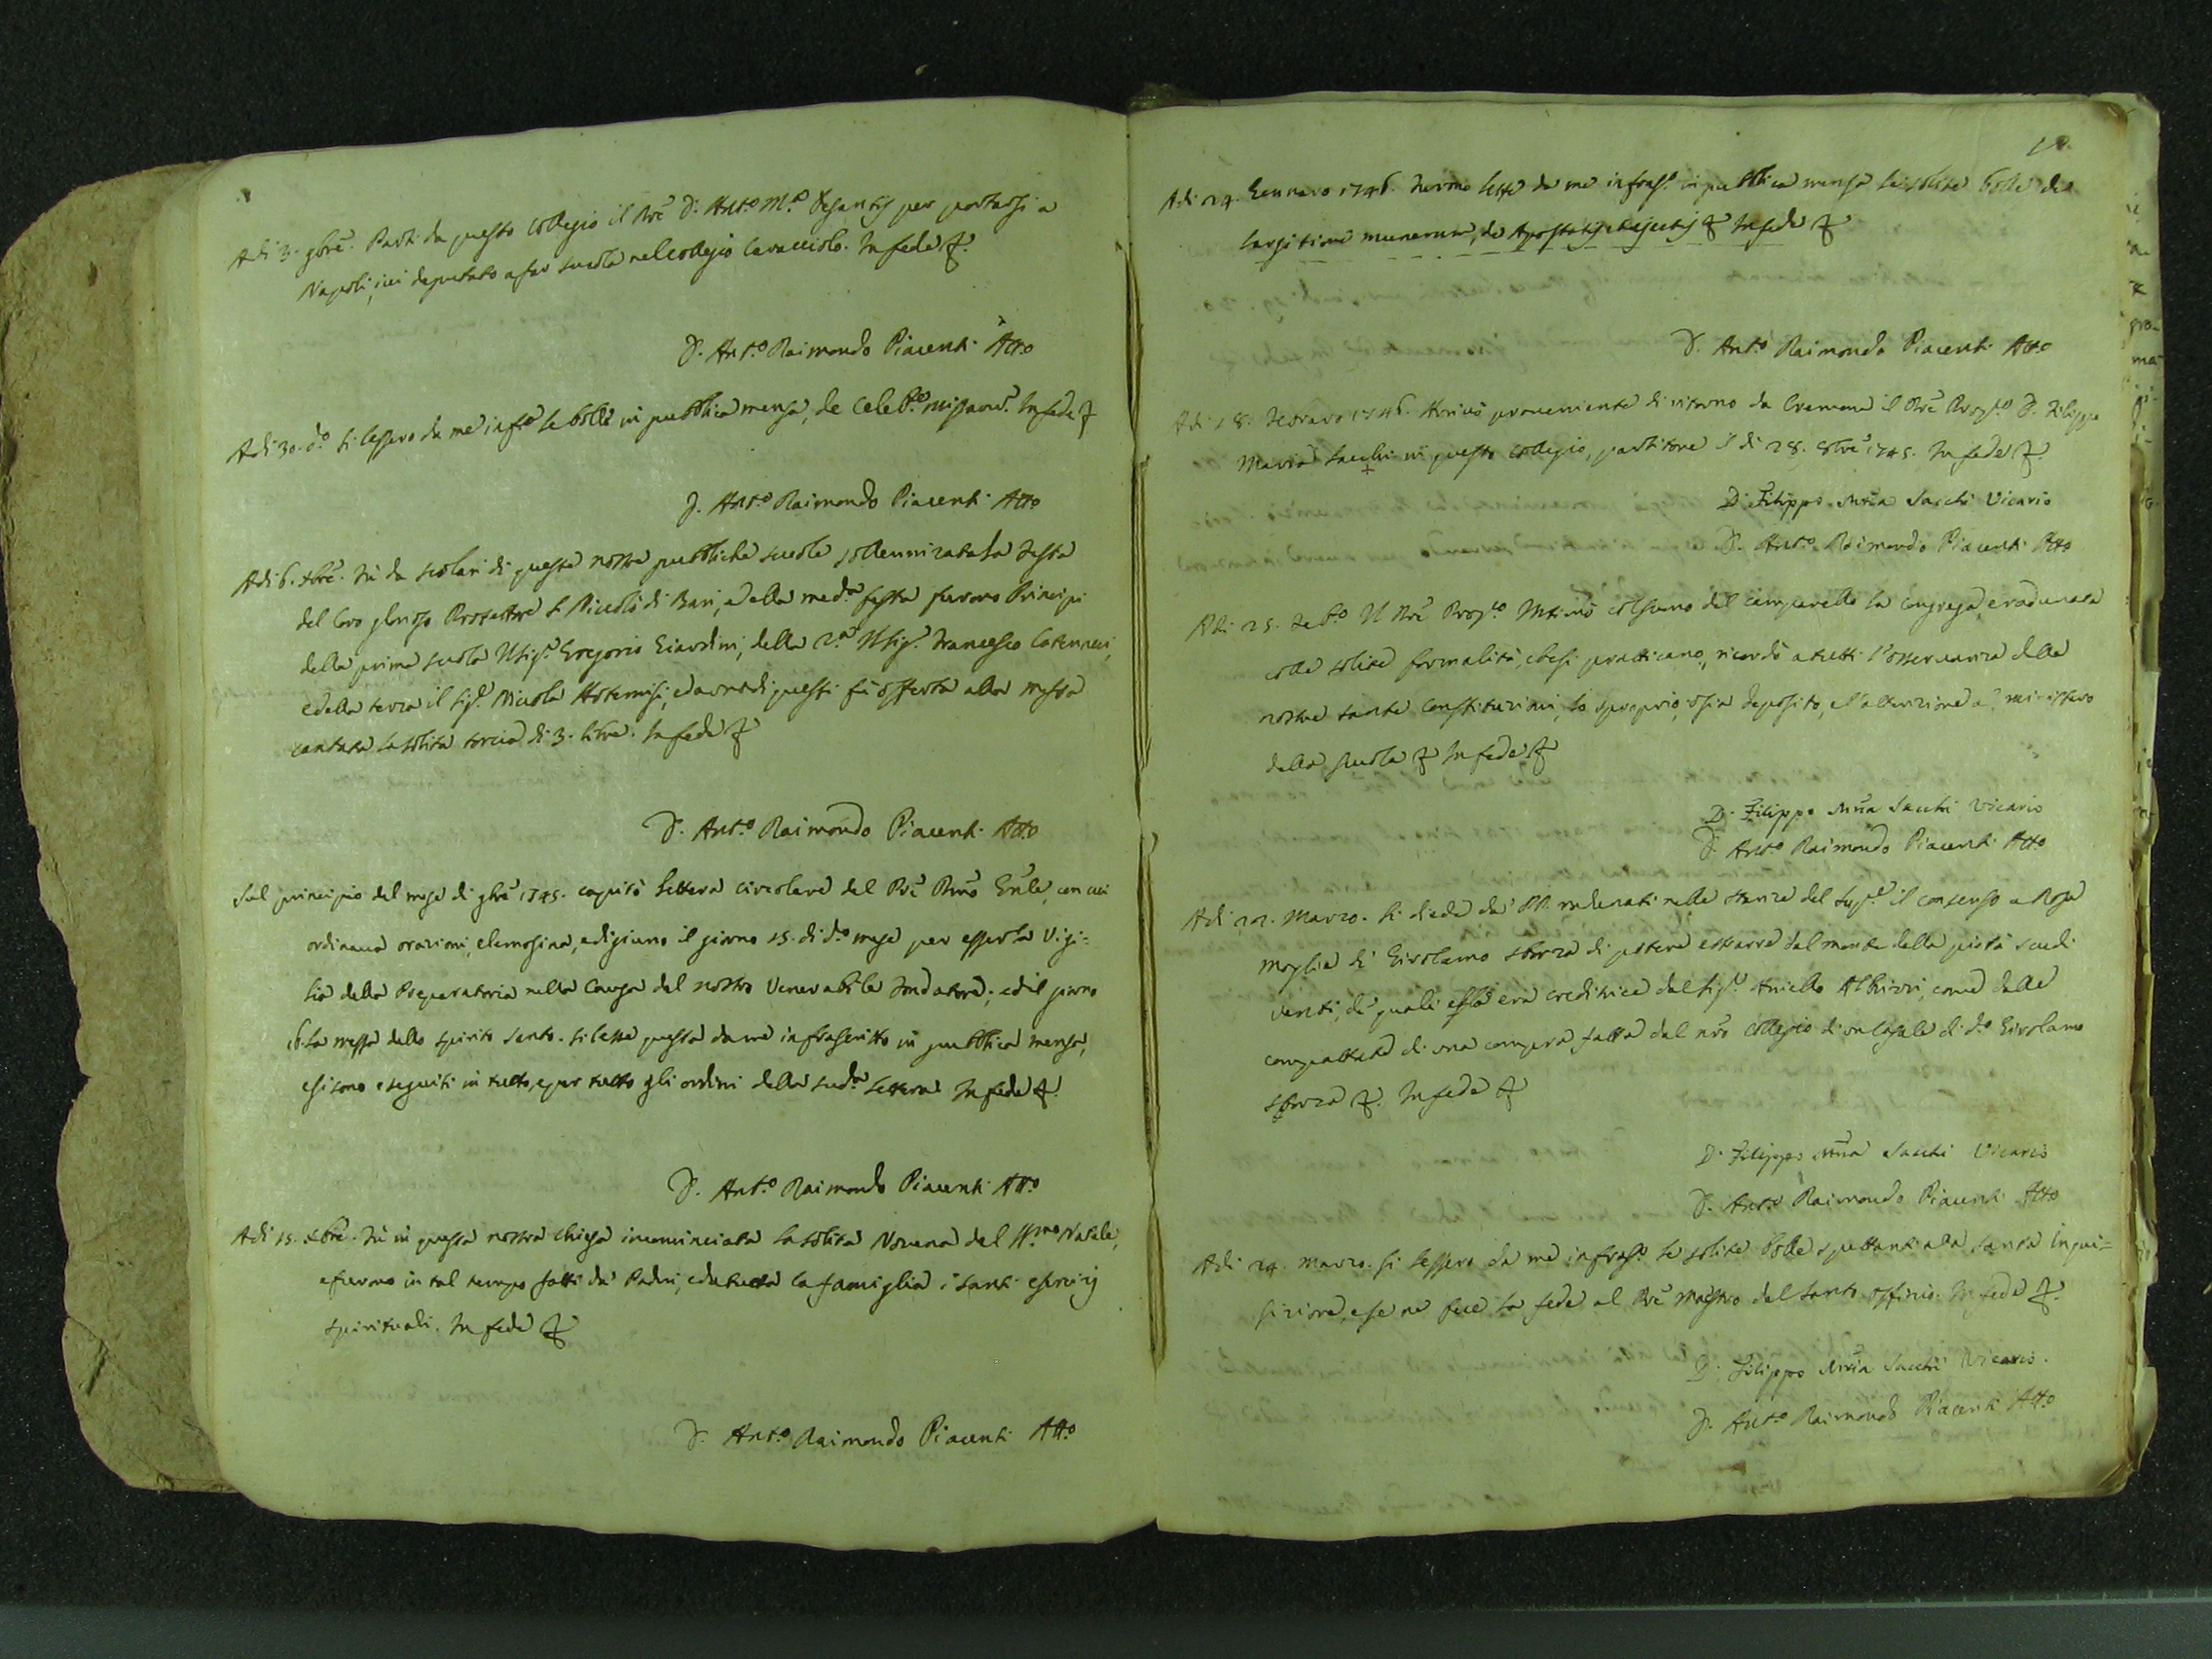 Adi 3. 9bre. Partì da questo Collegio il Pre D. Ant.o M.a Desantis per portarsi a
Napoli, ivi deputato a far scuola nel collegio Caracciolo. In fede &
D. Ant.o Raimondo Piacenti Att.o
Adi 30. d.o si lessero da me infr.o le bolle in pubblica mensa, de celeb.e missarum. In fede &
D. Ant.o Raimondo Piacenti Att.o
Adi 6. Xbre. Fù da scolari di queste nostre pubbliche scuole sollennizata la festa
del loro glorioso Protettore S. Niccolò di Bari, e della med.a festa furono Principi
della prima scuola Il Sig.r Gregorio Giardini, della 2.a Il Sig.r Francesco Catennacci,
e della terza il Sig.r Nicola Artemisi, ed a una di questi fù offerta alla messa
cantata la solita torcia di 3. libre. In fede &
D. Ant.o Raimondo Piacenti Att.o
Sul principio del mese di 9bre 1745. capitò lettera circolare del Pre Rmo Gnle, con cui
ordinava orazioni, elemosina, e digiuno il giorno 15. di d.o mese per esser la Vigi=
lia della Preparatoria nella Causa del nostro Venerabile Fondatore; ed il giorno
16. la messa dello Spirito Santo. Si lesse questa da me infrascritto in pubblica mensa,
e si sono eseguiti in tutto, e per tutto gli ordini della sud.a lettera In fede &
D. Ant.o Raimondo Piacenti Att.o
Adi 15. Xbre. Fù in questa nostra chiesa incominciata la solita Novena del SS.mo Natale,
e furono in tal tempo fatti da' Padri, e da tutta la famiglia i santi esercizij
spirituali. In fede &
D. Ant.o Raimondo Piacenti Att.o
Adi 24. Gennaro 1746. Furono lette da me infras.o in pubblica mensa le solite bolle de
largitione munerum, de Apostatis, et ejectis & In fede &
D. Ant.o Raimondo Piacenti Att.o
Adi 18. Febraro 1746. Arrivò proveniente di ritorno da Cremona il Pre Prop.to D. Filippo
Maria Sacchi in questo Collegio, partitone il dì 28. 8bre 1745. In fede &
D. Filippo Mria Sacchi Vicario
D. Ant.o Raimondo Piacenti Att.o
Adi 25. Feb.o Il Pre Prop.to Intimò col suono del campanello la congrega, e radunata
colle solite formalità, che si pratticano, ricordò a tutti l'osservanza delle
nostre sante Constituzioni, lo sproprio, o sia deposito, e l'attenzione a' ministero
della scuola & In fede &
D. Filippo Mria Sacchi Vicario
D. Ant.o Raimondo Piacenti Att.o
Adi 22. Marzo. Si diede da' PP. radunati nella stanza del Sup.re il consenso a Rosa
moglie di Girolamo Sforza di potere estrarre dal monte della pietà scudi
venti, de' quali essa era creditrice dal Sig.r Aniello come dalle
di una compera fatta dal nro Collegio di un casale di d.o Girolamo
Sforza &. In fede &
D. Filippo Mria Sacchi Vicario
D. Ant.o Raimondo Piacenti Att.o
Adi 24. Marzo. Si lessero da me infras.o le solite bolle spettanti alla Santa Inqui=
sizione, e se ne fece la fede al Pre Maestro del Santo Offizio. In fede &
D. Filippo Mria Sacchi Vicario.
D. Ant.o Raimondo Piacenti Att.o